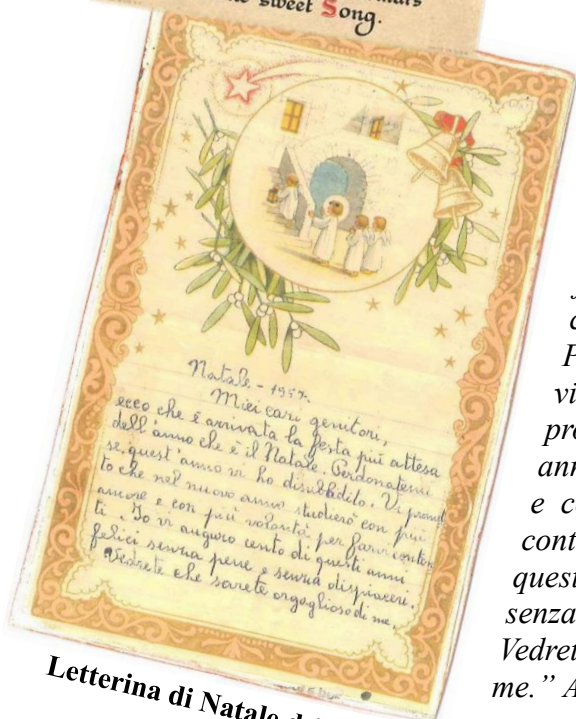 sweet Song.
Natale - 1957.
Miei cari genitori,
ecco che è arrivata la festa più attesa
dell'anno che è il Natale. Perdonatemi
se quest'anno vi ho disubbidito. Vi promet
to che nel nuovo anno studierò con più
amore e con più volontà per farvi conten
ti. Io vi auguro cento di questi anni
felici senza pene e senza dispiacere.
Vedrete che sarete orgogliosi di me.
Letterina di Natale
vi
pro
ann
e c
cont
quest
senza
Vedret
me.” A